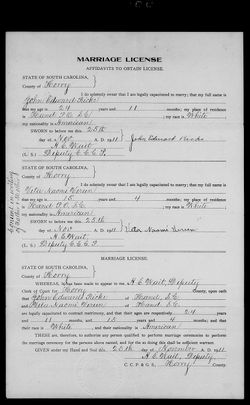 MARRIAGE LICENSE
AFFIDAVITS TO OBTAIN LICENSE.
STATE OF SOUTH CAROLINA,
County of Horry
I do solemnly swear that I am legally capacitated to marry; that my full name is
John Edward Hicks
that my age is 24 years and 11 months; my place of residence
is Hand P.O. S.C. ; my race is White
my nationality is American
SWORN to before me this 25th
day of Nov A. D. 1911 John Edward Hicks
H. E. Wait
(L. S.) Deputy C.C.C.P.
STATE OF SOUTH CAROLINA,
County of Horry
I do solemnly swear that I am legally capacitated to marry; that my full name is
Naomi
that my age is 15 years and 4 months; my place of residence
is Hand P.O. S.C. ; my race is White
my nationality is American
SWORN to before me this 25th
day of Nov A. D. 1911 Naomi
H. E. Wait
(L. S.) Deputy C.C.C.P.
MARRIAGE LICENSE.
STATE OF SOUTH CAROLINA,
County of Horry
WHEREAS, It has been made to appear to me H. E. Wait, Deputy
Clerk of Court for Horry County, upon oath
that John Edward Hicks of Hand, S.C.
and Naomi of Hand, S.C.
are legally capacitated to contract matrimony, and that their ages are respectively 24
years and 11 months, and 15 years and 4 months; and that their race
is White and their nationality is American
THESE ARE, Therefore, to authorize any person qualified to perform marriage ceremonies to perform the
marriage ceremony for the persons above named, and for the so doing this shall be sufficient warrant.
GIVEN under my Hand and Seal this 25th day of November A. D. 1911
H. E. Wait, Deputy
C C P & G S, Horry County.